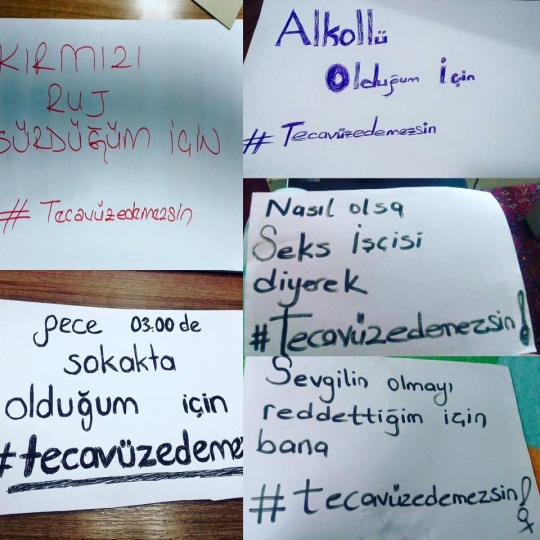 KIRMIZI
RUJ
SÜRDÜĞÜM İÇİN
# Tecavüzedemezsin
Alkollü
Olduğum İçin
# Tecavüzedemezsin
Nasıl olsa
Seks İşçisi
diyerek
#Tecavüzedemezsin!
gece 03:00 de
sokakta
olduğum için
#tecavüzedeme
Sevgilin olmayı
reddettiğim için
bana
#tecavüzedemezsin!